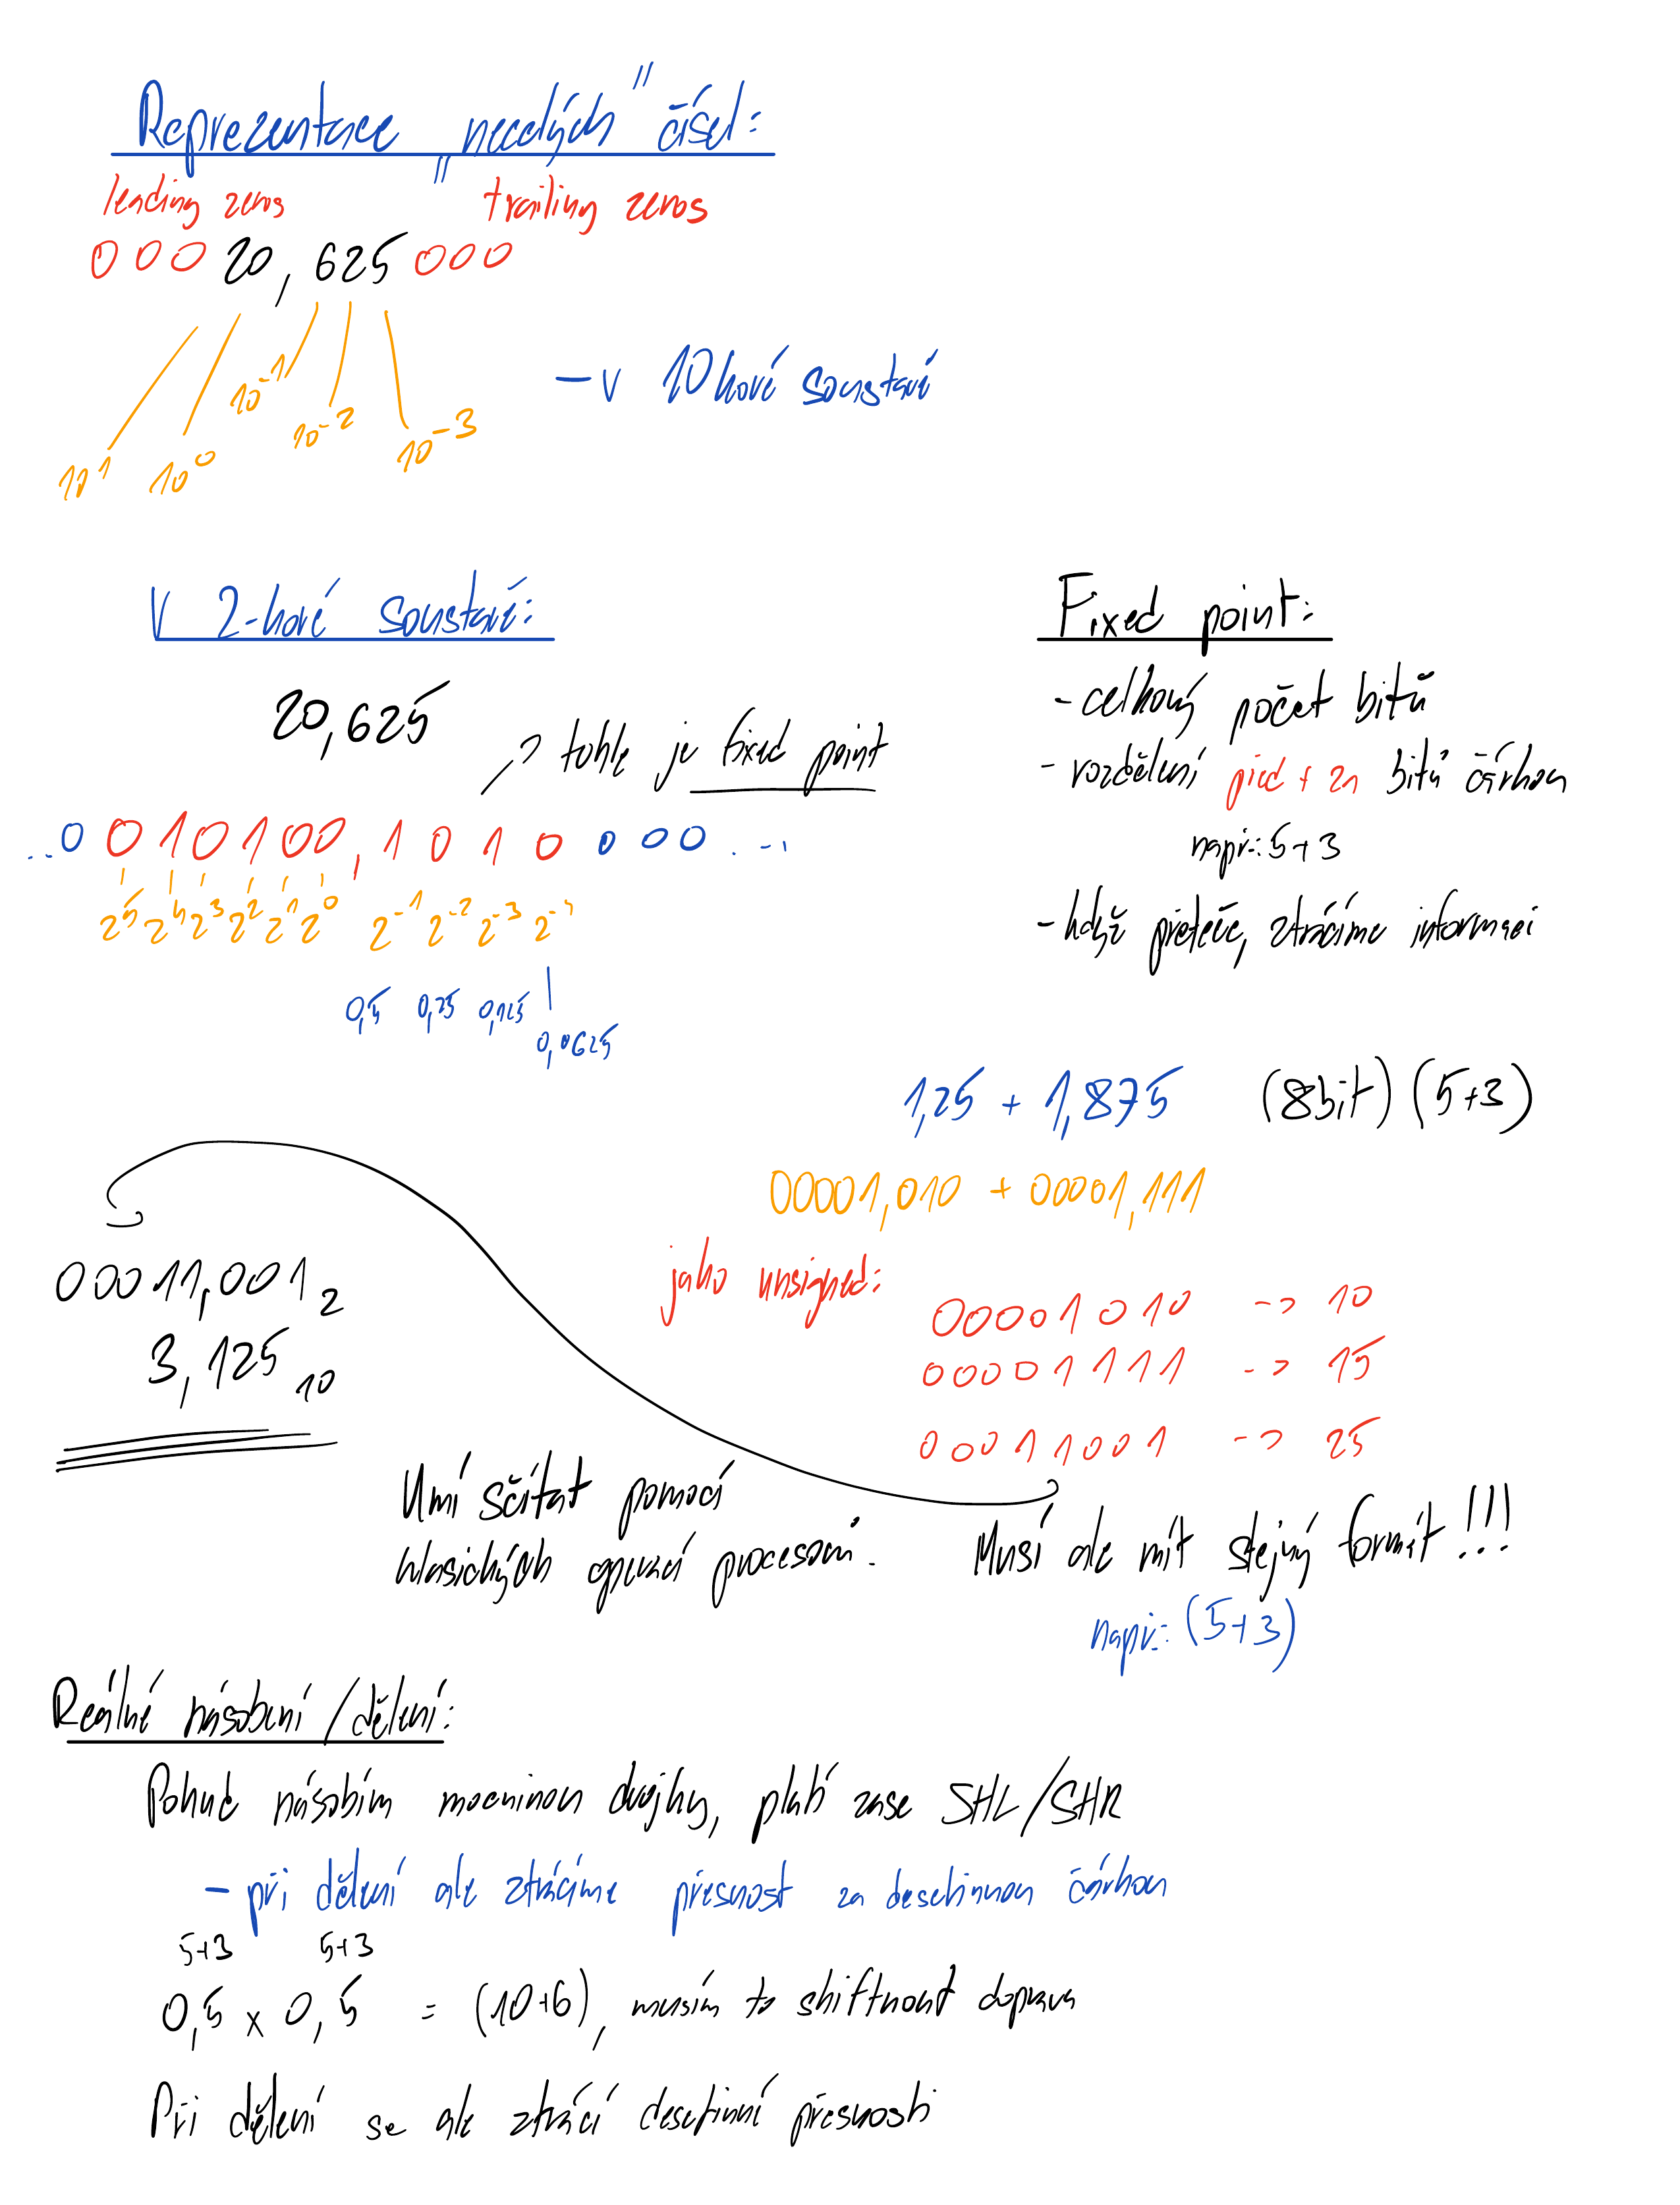 Reprezentace „necelých" čísel:
leading zeros trailing zeros
000 20,625 000
10^1 10^0 10^-1 10^-2 10^-3
- v 10kové soustavě
V 2-kové soustavě:
20,625
→ tohle je fixed point
...0 010100,1010 000...
2^5 2^4 2^3 2^2 2^1 2^0 2^-1 2^-2 2^-3 2^-4
0,5 0,25 0,125
0,0625
Fixed point:
- celkový počet bitů
- rozdělení před + za bitů čárkou
např.: 5+3
- když přeteče, ztrácíme informaci
1,25 + 1,875 (8bit) (5+3)
00001,010 + 00001,111
jako unsigned:
00001010 -> 10
00001111 -> 15
00011001 -> 25
00011,001₂
3,125₁₀
Umí sčítat pomocí
klasických operací procesoru.
Musí ale mít stejný formát!!!
např.: (5+3)
Reálné násobení/dělení:
Pokud násobím mocninou dvojky, platí zase SHL/SHR
- při dělení ale ztrácíme přesnost za desetinnou čárkou
5+3 5+3
0,5 x 0,5 = (10+6), musím to shiftnout doprava
Při dělení se ale ztrácí desetinné přesnosti